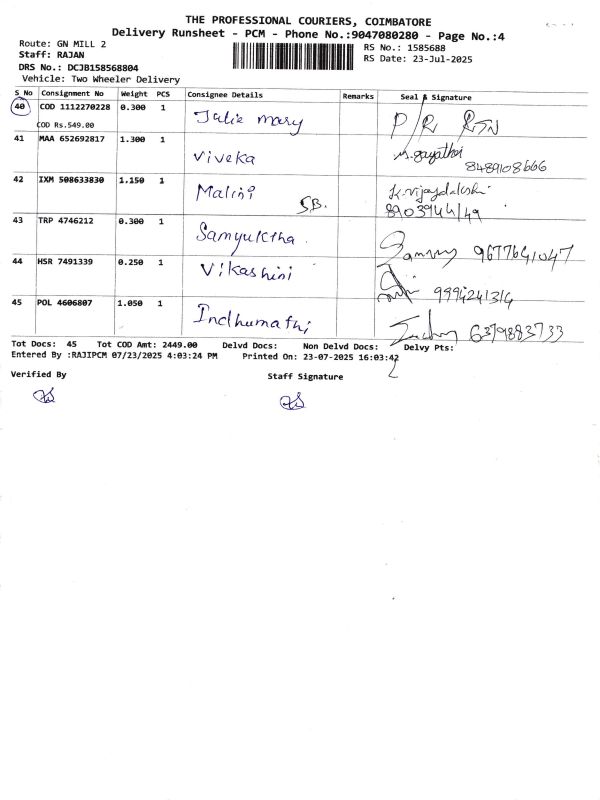 THE PROFESSIONAL COURIERS, COIMBATORE
Delivery Runsheet - PCM - Phone No.:9047080280 - Page No.:4
Route: GN MILL 2
Staff: RAJAN
DRS No.: DCJB158568804
Vehicle: Two Wheeler Delivery
RS No.: 1585688
RS Date: 23-Jul-2025
S_No Consignment No Weight PCS Consignee Details Remarks Seal & Signature
40 COD 1112270228 0.300 1 Julie mary P/R RTN
COD Rs.549.00
41 MAA 652692817 1.300 1 Viveka M.gayathri 8489108666
42 IXM 508633830 1.150 1 Malini S.B. K.vijayalakshi 8903944149
43 TRP 4746212 0.300 1 Samyuktha 9677641047
44 HSR 7491339 0.250 1 Vikashini 9994241314
45 POL 4606807 1.050 1 Indhumathi 6379883733
Tot Docs: 45 Tot COD Amt: 2449.00 Delvd Docs: Non Delvd Docs: Delvy Pts:
Entered By :RAJIPCM 07/23/2025 4:03:24 PM Printed On: 23-07-2025 16:03:42
Verified By Staff Signature